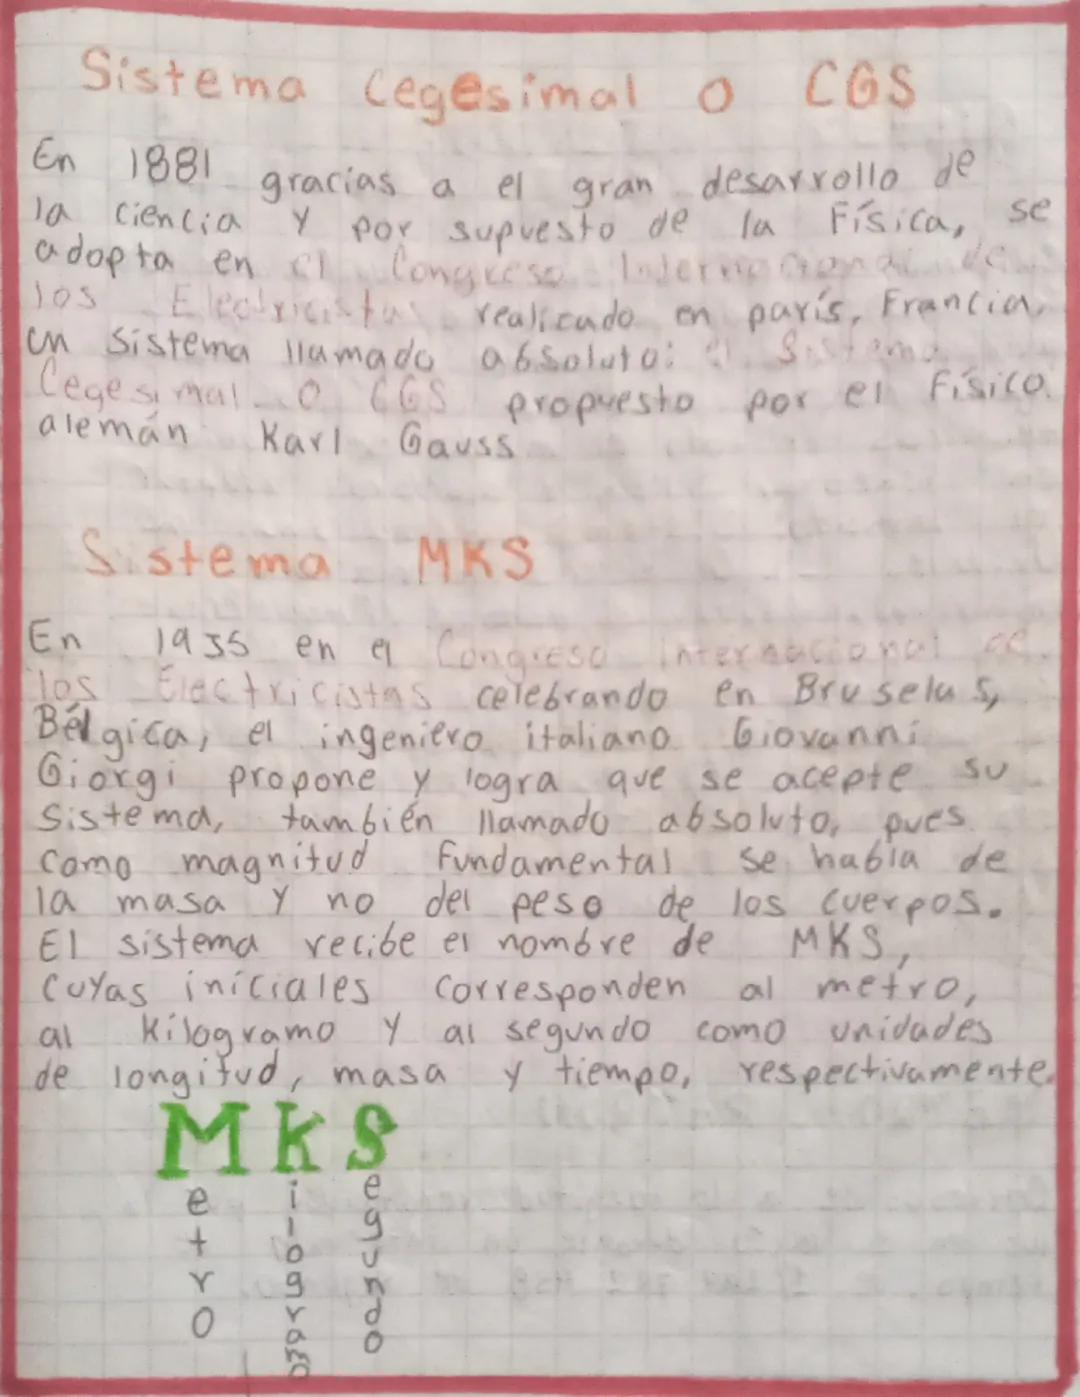 Sistema Cegesimal o CGS
En 1881 gracias a el gran desarrollo de
la ciencia y por supuesto de la Física, se
adopta en el Congreso Internacional de
los Electricistas realizado en parís, Francia,
un sistema llamado absoluto: el Sistema
Cegesimal o CGS propuesto por el Físico
alemán Karl Gauss
Sistema MKS
En 1935 en el Congreso internacional de
los Electricistas celebrando en Bruselas,
Bélgica, el ingeniero italiano Giovanni
Giorgi propone y logra que se acepte su
sistema, también llamado absoluto, pues
como magnitud fundamental se habla de
la masa y no del peso de los cuerpos.
El sistema recibe el nombre de MKS,
cuyas iniciales corresponden al metro,
al Kilogramo y al segundo como unidades
de longitud, masa y tiempo, respectivamente.
MkS
etro
ilogramo
egundo